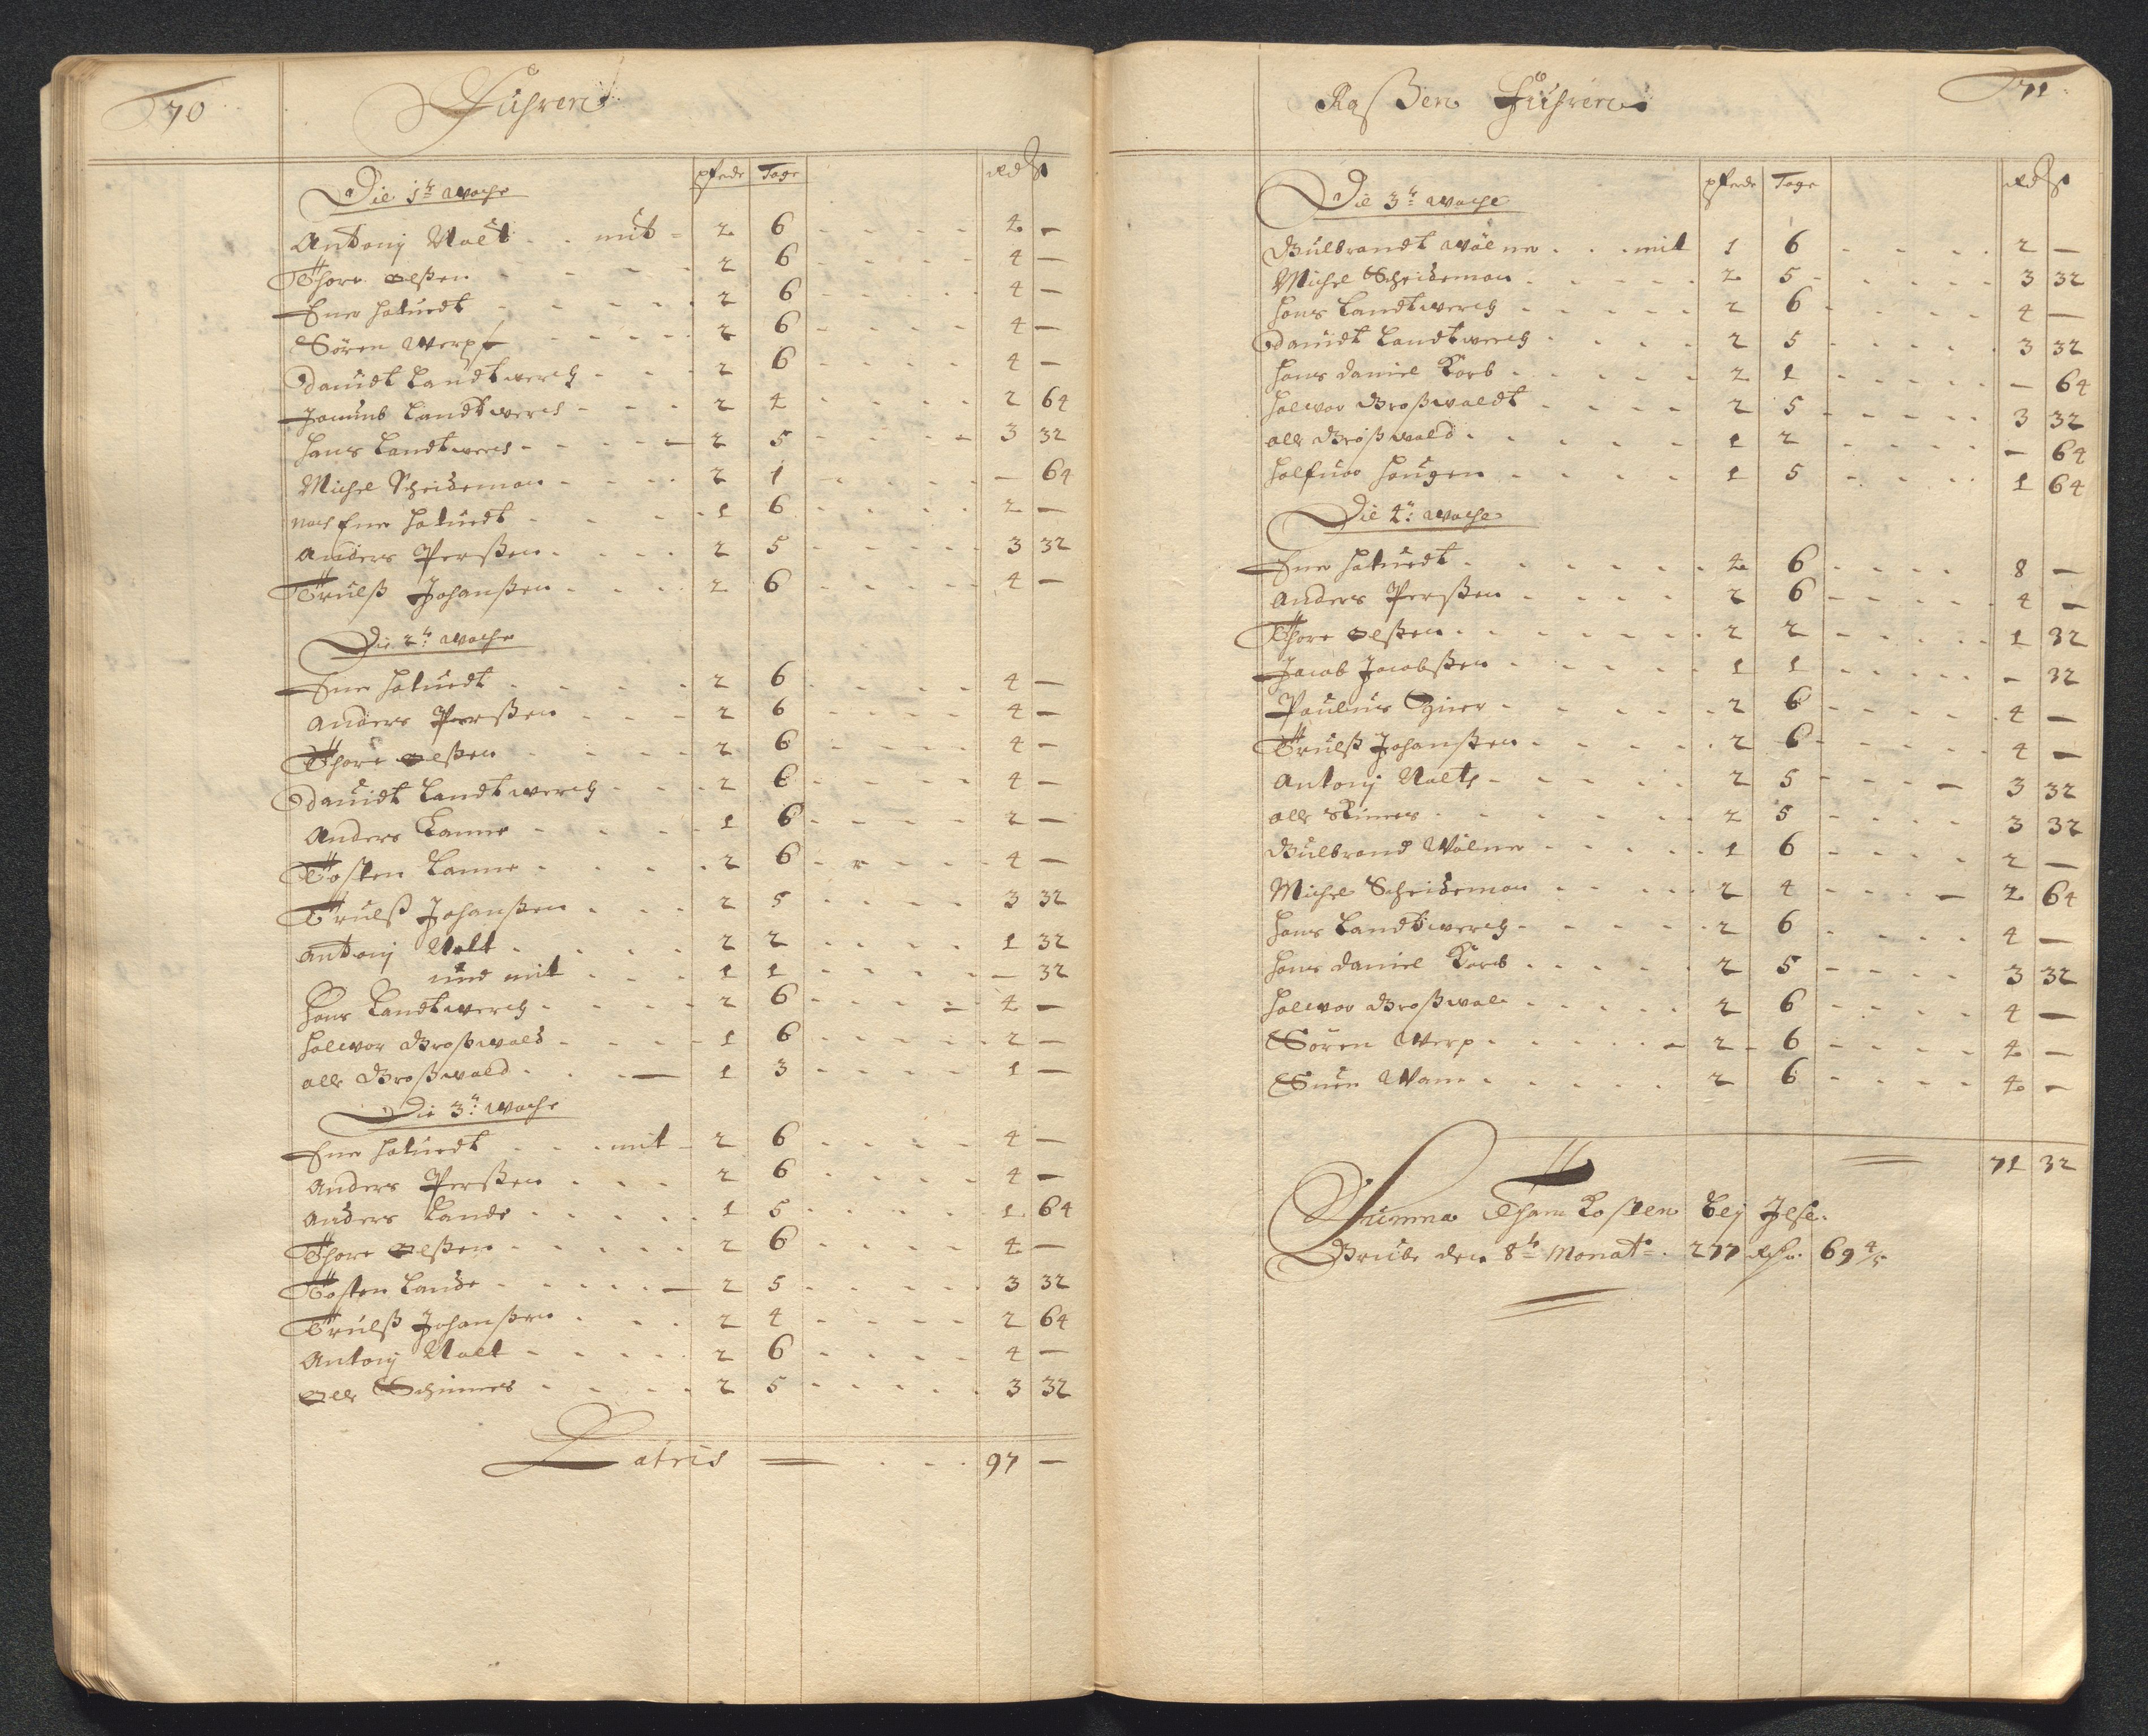 70
Fuhren
pferde Tage Rd ß
Die 1te Woche
Antonij Nolt - - mit - 2 6 - - - - 4 -
Thore Olßen - - - - 2 6 - - - - 4 -
Ener Haluedt - - - - 2 6 - - - - 4 -
Sören Werp - - - - 2 6 - - - - 4 -
Dauidt Landtwercg - - - 2 6 - - - - 4 -
Landtwerch - - - 2 4 - - - - 2 64
Hans Landtwerch - - - - 2 5 - - - - 3 32
Michel Scheideman - - - - 2 1 - - - - - 64
noch Ener Haluedt - - - - 1 6 - - - - 2 -
Anders Perßen - - - - 2 5 - - - - 3 32
Trulß Johanßen - - - - 2 6 - - - - 4 -
Die 2te Woche
Ener Haluedt - - - - 2 6 - - - - 4 -
Anders Perßen - - - 2 6 - - - - 4 -
Thore Olßen - - - - 2 6 - - - - 4 -
Dauidt Landtwercg - - - 2 6 - - - - 4 -
Anders Lanne - - - - 1 6 - - - - 2 -
Tosten Lanne - - - - 2 6 - - - - 4 -
Trulß Johanßen - - - 2 5 - - - - 3 32
Antonij Nolt - - - - 2 2 - - - - 1 32
und mit - - - 1 1 - - - - - 32
Hans Landtwercg - - - - 2 6 - - - - 4 -
Halwor Großwald - - - - 1 6 - - - - 2 -
Olle Großwald - - - 1 3 - - - - 1 -
Die 3te Woche
Ener Haluedt - - - mit - 2 6 - - - - 4 -
Anders Perßen - - - 2 6 - - - - 4 -
Anders Lande - - - - - 1 5 - - - - 1 64
Thore Olßen - - - - - 2 6 - - - - 4 -
Tosten Lande - - - - - 2 5 - - - - 3 32
Trulß Johanßen - - - 2 4 - - - - 2 64
Antonij Nolt - - - - 2 6 - - - - 4 -
Olle Schimes - - - - 2 5 - - - - 3 32
Latris - - - 97 -
71
Roßen Fuhren
pferde Tage Rd ß
Die 3te Woche
Gulbrandt Wölner - - - mit 1 6 - - - - 2 -
Michel Scheideman - - - - 2 5 - - - - 3 32
Hans Landtwercg - - - - - 2 6 - - - - 4 -
Dauidt Landtwercg - - - - 2 5 - - - - 3 32
Hans Daniel Korb - - - - - 2 1 - - - - - 64
Halwor Großwaldt - - - - 2 5 - - - - 3 32
Olle Großwald - - - - - 1 2 - - - - - 64
Halfuor Haugen - - - - 1 5 - - - - 1 64
Die 4te Woche
Ener Haluedt - - - - - - 4 6 - - - - 8 -
Anders Perßen - - - - 2 6 - - - - 4 -
Thore Olßen - - - - - - 2 2 - - - - 1 32
Jacob Jacobßen - - - - - 1 1 - - - - - 32
Paulus - - - - - 2 6 - - - - 4 -
Trulß Johanßen - - - - - 2 6 - - - - 4 -
Antonij Nolts - - - - - 2 5 - - - - 3 32
Olle Skimes - - - - - - 2 5 - - - - 3 32
Gulbrand Wölner - - - - - 1 6 - - - - 2 -
Michel Scheideman - - - - 2 4 - - - - 2 64
Hans Landtwercg - - - - - 2 6 - - - - 4 -
Hans Daniel Korb - - - - - 2 5 - - - - 3 32
Halwor Großwal - - - - - 2 6 - - - - 4 -
Sören Werp - - - - - - 2 - 6 - - - - 4 -
Wam - - - - - 2 6 - - - - 4 -
71 32
Summa Kosten beij
Grube den 8te Monat - 277 Rd 69 4/5